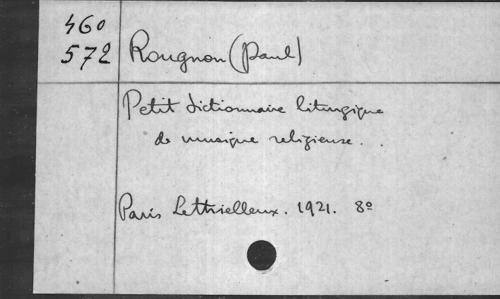 460
572
Rougnon (Paul)
Petit dictionnaire liturgique
de musique religieuse.
Paris Lethielleux. 1921. 8º